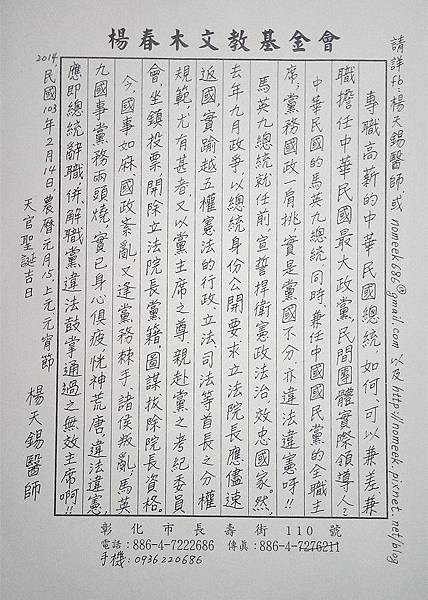 楊春木文教基金會
請詳fb:楊天錫醫師,或homeek686@gmail.com以及http://homeek.pixnet.net/blog
專職高薪的中華民國總統,如何,可以兼差,兼
職擔任中華民國最大政黨,民間團體實際領導人?
中華民國的馬英九總統,同時,兼任中國國民黨的全職主
席;黨務國政一肩挑,實是黨國不分,亦違法違憲呀!!
馬英九總統就任前,宣誓捍衛憲政法治,效忠國家。然,
去年九月政爭,以總統身份公開要求立法院長應儘速
返國,實踰越五權憲法的行政、立法、司法等首長之分權
規範,尤有甚者,又以黨主席之尊,親赴黨之考紀委員
會,坐鎮投票,開除立法院長黨籍,圖謀拔除院長資格。
今,國事如麻,國政紊亂,又逢黨務棘手,諸侯叛亂,馬英
九國事黨務兩頭燒,實已身心俱疲,恍神荒唐,違法違憲,
應即總統辭職,併,解職黨違法鼓掌通過之無效主席啊!!
2014
民國103年2月14日,農曆元月15,上元元宵節
天官聖誕吉日
楊天錫醫師
彰化市長壽街110號
電話:886-4-7222686 傳真:886-4-7276211
手機:0936220686